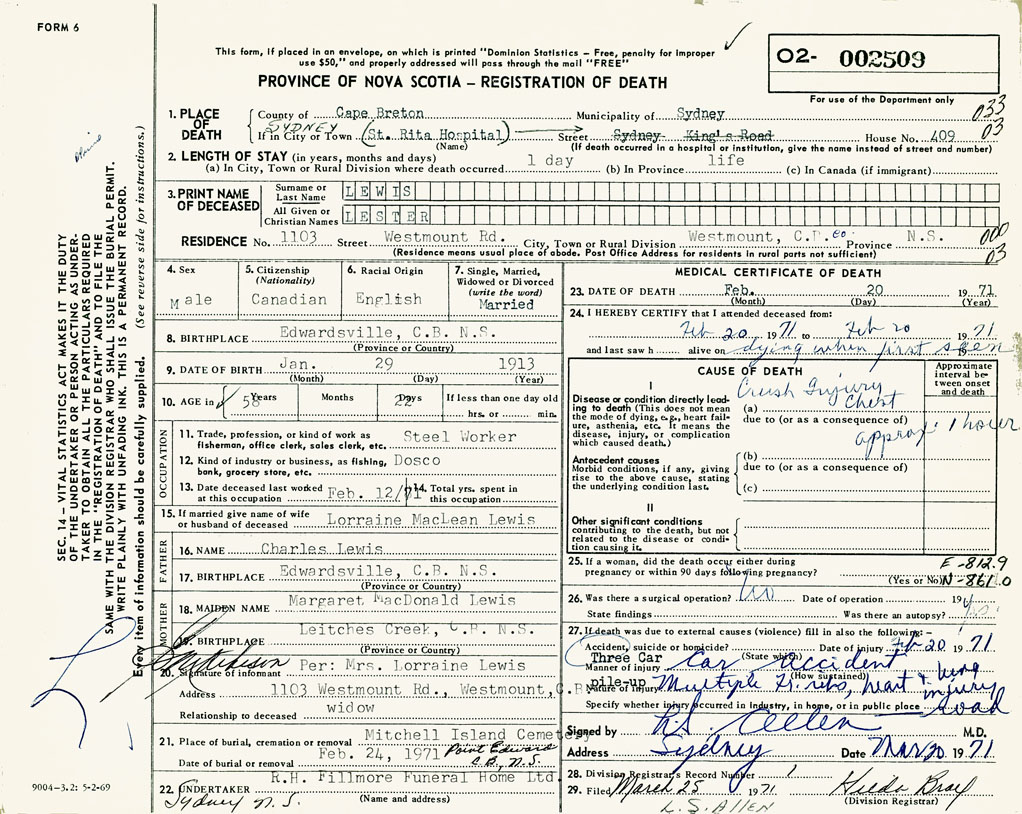 FORM 6
This form, if placed in an envelope, on which is printed "Dominion Statistics – Free, penalty for improper
use $50," and properly addressed will pass through the mail "FREE"
PROVINCE OF NOVA SCOTIA – REGISTRATION OF DEATH
O2- 002509
For use of the Department only
033
03
1. PLACE OF DEATH
County of Cape Breton Municipality of Sydney
SYDNEY
If in City or Town (St. Rita Hospital) Street Sydney King's Road House No. 409
(Name) (If death occurred in a hospital or institution, give the name instead of street and number)
2. LENGTH OF STAY (in years, months and days) 1 day life
(a) In City, Town or Rural Division where death occurred (b) In Province (c) In Canada (if immigrant)
3. PRINT NAME OF DECEASED
Surname or Last Name LEWIS
All Given or Christian Names LESTER
RESIDENCE No. 1103 Street Westmount Rd. City, Town or Rural Division Westmount, C.B. co. Province N.S.
(Residence means usual place of abode. Post Office Address for residents in rural parts not sufficient)
000
03
4. Sex
Male
5. Citizenship
(Nationality)
Canadian
6. Racial Origin
English
7. Single, Married,
Widowed or Divorced
(write the word)
Married
8. BIRTHPLACE Edwardsville, C.B. N.S.
(Province or Country)
9. DATE OF BIRTH Jan. 29 1913
(Month) (Day) (Year)
10. AGE in 58 Years Months 22 Days If less than one day old
hrs. or min.
OCCUPATION
11. Trade, profession, or kind of work as Steel Worker
fisherman, office clerk, sales clerk, etc.
12. Kind of industry or business, as fishing, Dosco
bank, grocery store, etc.
13. Date deceased last worked at this occupation Feb. 12/71
14. Total yrs. spent in this occupation
15. If married give name of wife
or husband of deceased Lorraine MacLean Lewis
FATHER
16. NAME Charles Lewis
17. BIRTHPLACE Edwardsville, C.B. N.S.
(Province or Country)
MOTHER
18. MAIDEN NAME Margaret MacDonald Lewis
19. BIRTHPLACE Leitches Creek, C.B. N.S.
(Province or Country)
20. Signature of informant Per: Mrs. Lorraine Lewis
Address 1103 Westmount Rd., Westmount, C.B
Relationship to deceased widow
21. Place of burial, cremation or removal Mitchell Island Cemetery
Point Edward
C.B., N.S.
Date of burial or removal Feb. 24, 1971
22. UNDERTAKER R.H. Fillmore Funeral Home Ltd.
Sydney N.S. (Name and address)
MEDICAL CERTIFICATE OF DEATH
23. DATE OF DEATH Feb. 20 1971
(Month) (Day) (Year)
24. I HEREBY CERTIFY that I attended deceased from:
Feb 20 1971 to Feb 20 1971
and last saw h alive on dying when first seen 19
CAUSE OF DEATH
Approximate interval between onset and death
I
Disease or condition directly leading to death (This does not mean the mode of dying, e.g., heart failure, asthenia, etc. It means the disease, injury, or complication which caused death.)
(a) Crush Injury Chest
due to (or as a consequence of)
approx. 1 hour
Antecedent causes
Morbid conditions, if any, giving rise to the above cause, stating the underlying condition last.
(b)
due to (or as a consequence of)
(c)
II
Other significant conditions
contributing to the death, but not related to the disease or condition causing it.
25. If a woman, did the death occur either during
pregnancy or within 90 days following pregnancy? (Yes or No)
E-812.9
N-861.0
26. Was there a surgical operation? No Date of operation 19
State findings Was there an autopsy?
27. If death was due to external causes (violence) fill in also the following:-
Accident, suicide or homicide? Date of injury Feb 20 1971
(State which)
Three Car
pile-up
Manner of injury Car accident
(How sustained)
Nature of injury Multiple fr. ribs, heart & lung injury
Specify whether injury occurred in Industry, in home, or in public place road
Signed by Allen M.D.
Address Sydney Date Mar 20 1971
28. Division Registrar's Record Number 1
29. Filed March 25 1971 Hilda Bray
(Division Registrar)
L.S. ALLEN
SEC. 14 – VITAL STATISTICS ACT MAKES IT THE DUTY
OF THE UNDERTAKER OR PERSON ACTING AS UNDER-
TAKER TO OBTAIN ALL THE PARTICULARS REQUIRED
IN THE "REGISTRATION OF DEATH" AND TO FILE THE
SAME WITH THE DIVISION REGISTRAR WHO SHALL ISSUE THE BURIAL PERMIT.
WRITE PLAINLY WITH UNFADING INK. THIS IS A PERMANENT RECORD.
Every item of information should be carefully supplied. (See reverse side for instructions.)
9004–3.2: 5-2-69